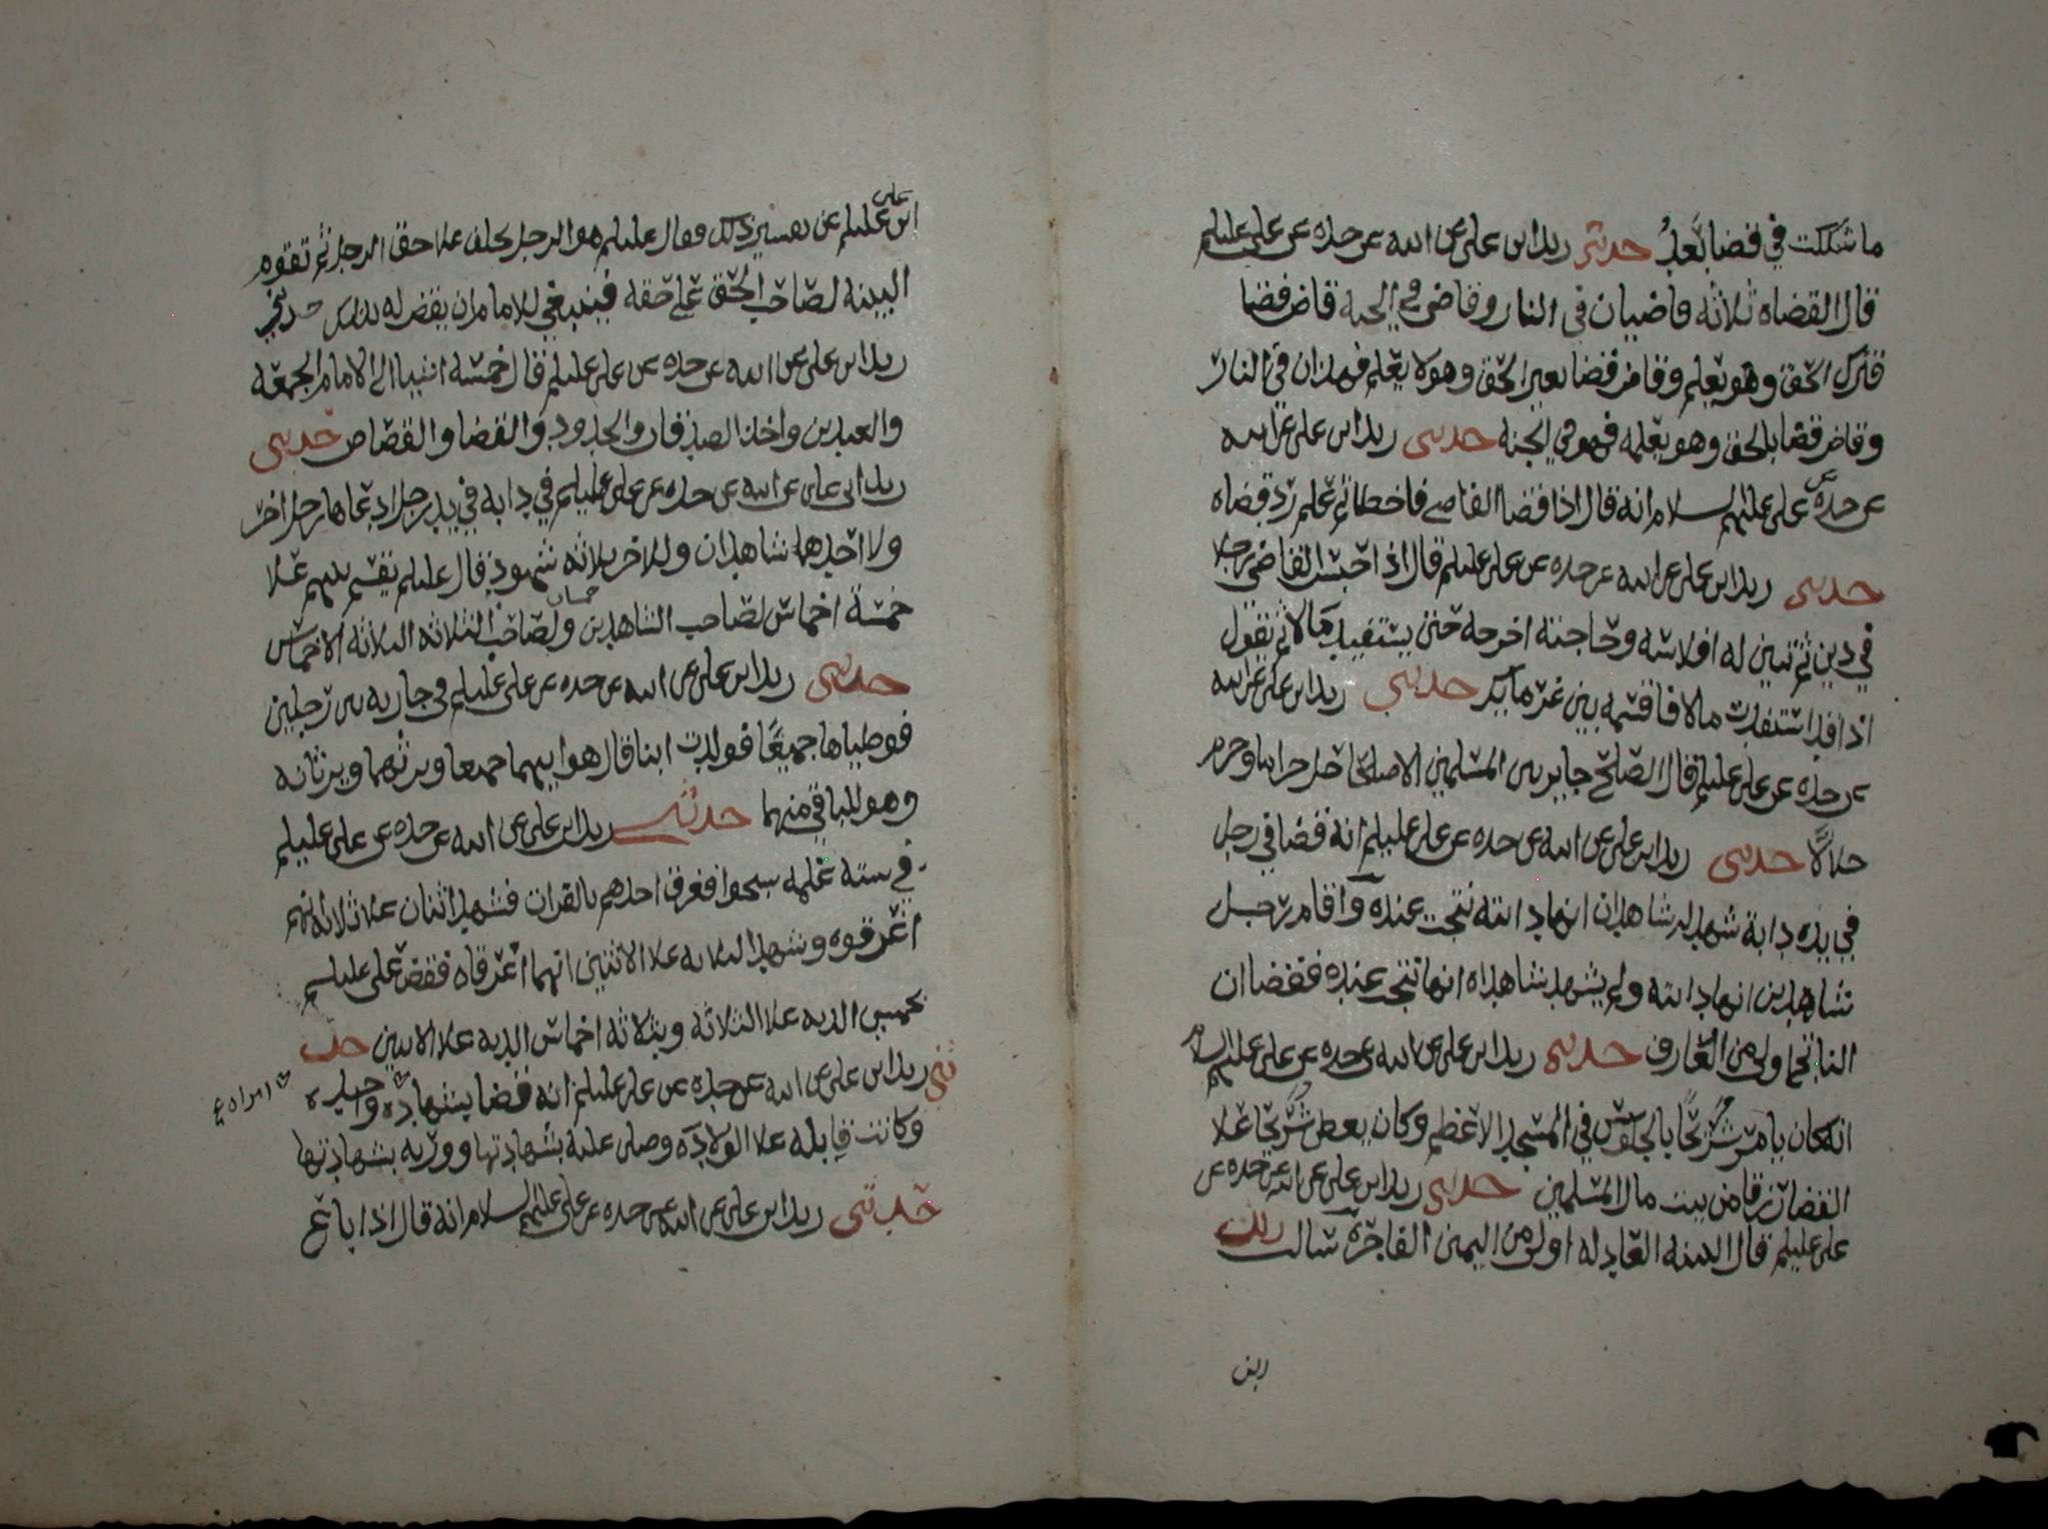 ما شككت في قضا بعد حدثني زيد ابن علي عن ابيه عن جده عن علي عليلم
قال القضاه ثلاثه قاضيان في النار وقاضي في الجنه قاض قضا
فترك الحق وهو يعلم وقاض قضا بغير الحق وهو لا يعلم فهذان في النار
وقاض قضا بالحق وهو يعلمه فهو في الجنه حدثني زيد ابن علي عن ابيه
عن جده عن علي عليهم السلام انه قال اذا قضا القاضي فاخطا ثم علم رد قضاه
حدثني زيد ابن علي عن ابيه عن جده عن علي عليلم قال اذا حبس القاضي رجلا
في دين ثم تبين له افلاسه وحاجته اخرجه حتى يستفيد مالا ثم تقول
اذا قد استفدت مالا فاقسمه بين غرمآيك حدثني زيد ابن علي عن ابيه
عن جده عن علي عليلم قال الصلح جايز بين المسلمين الا صلحا احل حراما وحرم
حلالا حدثني زيد ابن علي عن ابيه عن جده عن علي عليلم انه قضا في رجل
في يده دابة شهد له شاهدان انها دابته نتجت عنده واقام رجل
شاهدين انها دابته ولم يشهد شاهداه انها نتجت عنده فقضا ان
الناتج اولى من العارف حدثني زيد ابن علي عن ابيه عن جده عن علي عليه السلام
انه كان يامر شريحا بالجلوس في المسجد الاعظم وكان يعطي شريحا علا
القضا رزقا من بيت مال المسلمين حدثني زيد ابن علي عن ابيه عن جده عن
علي عليلم قال البينه العادله اولى من اليمين الفاجرة سالت زيد
ابن علي عليلم عن تفسير ذلك فقال عليلم هو الرجل يحلف علا حق الرجل ثم تقوم
البينه لصاحب الحق على حقه فينبغي للامام ان يقضي له بذلك حدثني
زيد ابن علي عن ابيه عن جده عن علي عليلم قال خمسة اشيا الى الامام الجمعه
والعيدين واخذ الصدقات والحدود والقضا والقصاص حدثني
زيد ابن علي عن ابيه عن جده عن علي عليلم في دابه في يد رجل ادعاها رجل اخر
ولا احدهما شاهدان وللاخر ثلاثه شهود قال عليلم تقسم بينهم علا
خمسة اخماس لصاحب الشاهدين خمسان ولصاحب الثلاثه الثلاثه الاخماس
حدثني زيد ابن علي عن ابيه عن جده عن علي عليلم في جاريه بين رجلين
فوطياها جميعا فولدت ابنا قال هو ابنهما جميعا ويرثهما ويرثانه
وهو للباقي منهما حدثني زيد ابن علي عن ابيه عن جده عن علي عليلم
في سته غلمه سبحوا فغرق احدهم بالفرات فشهد اثنان علا ثلاثه انهم
اغرقوه وشهد الثلاثه علا الاثنين انهما اغرقاه فقضى علي عليلم
بخمسي الديه علا الثلاثه وبثلاثه اخماس الديه علا الاثنين حد
ثني زيد ابن علي عن ابيه عن جده عن علي عليلم انه قضا بشهاده واحده
امراه
وكانت قابله علا الولاده وصلى عليه بشهادتها وورثه بشهادتها
حدثني زيد ابن علي عن ابيه عن جده عن علي عليهم السلام انه قال اذا باع